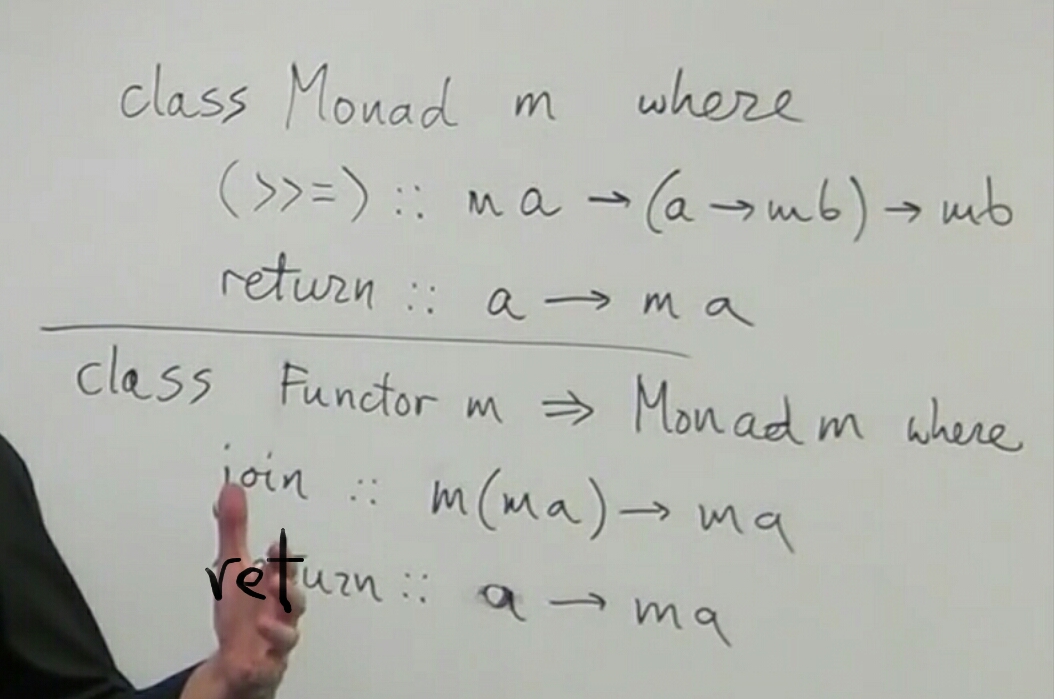 class Monad m where
(>>=) :: m a → (a → mb) → mb
return :: a → m a
class Functor m ⇒ Monad m where
join :: m(ma) → ma
return :: a → ma